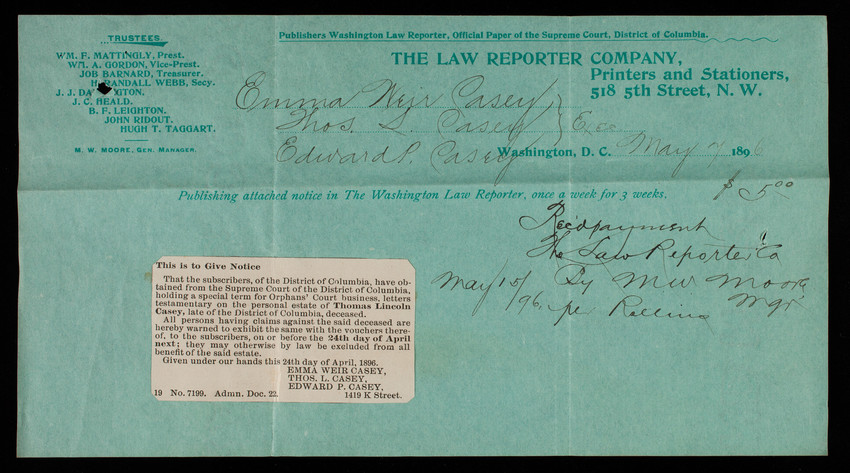 TRUSTEES
WM. F. MATTINGLY, Prest.
WM. A. GORDON, Vice-Prest.
JOB BARNARD, Treasurer.
H. RANDALL WEBB, Secy.
J. J. DA GTON.
J. C. HEALD.
B. F. LEIGHTON.
JOHN RIDOUT.
HUGH T. TAGGART.
M. W. MOORE, GEN. MANAGER.
Publishers Washington Law Reporter, Official Paper of the Supreme Court, District of Columbia.
THE LAW REPORTER COMPANY,
Printers and Stationers,
518 5th Street, N. W.
Emma Weir Casey
Thos. L. Casey Exec.
Edward P. Casey
Washington, D. C. May 7 1896
Publishing attached notice in The Washington Law Reporter, once a week for 3 weeks. $5.00
Rec'd payment
The Law Reporter Co
May 15/96 By M W Moore
Mgr
per Rollins
This is to Give Notice
That the subscribers, of the District of Columbia, have ob-
tained from the Supreme Court of the District of Columbia,
holding a special term for Orphans' Court business, letters
testamentary on the personal estate of Thomas Lincoln
Casey, late of the District of Columbia, deceased.
All persons having claims against the said deceased are
hereby warned to exhibit the same with the vouchers there-
of, to the subscribers, on or before the 24th day of April
next; they may otherwise by law be excluded from all
benefit of the said estate.
Given under our hands this 24th day of April, 1896.
EMMA WEIR CASEY,
THOS. L. CASEY,
EDWARD P. CASEY,
19 No. 7199. Admn. Doc. 22. 1419 K Street.